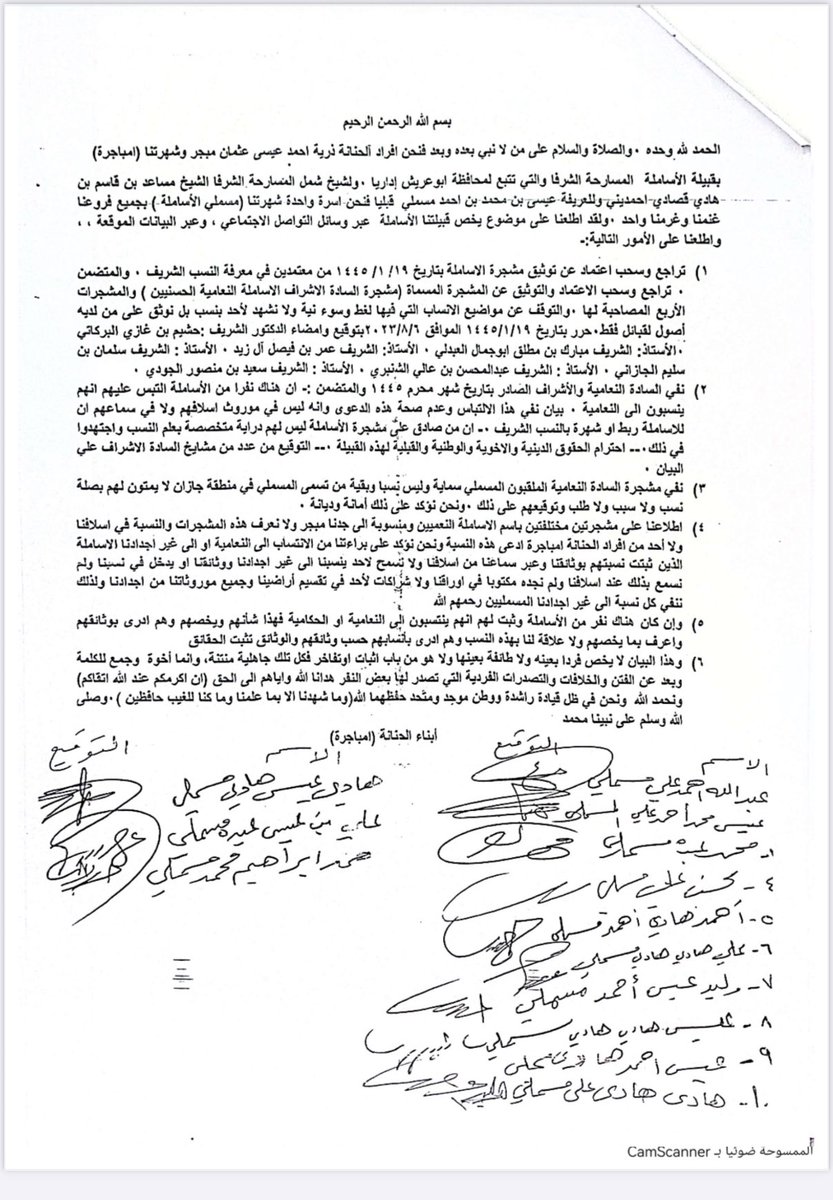 بسم الله الرحمن الرحيم
الحمد لله وحده ٠ والصلاة والسلام على من لا نبي بعده وبعد فنحن افراد الحنانة ذرية احمد عيسى عثمان مبجر وشهرتنا (امباجرة)
بقبيلة الأساملة المسارحة الشرفا والتي تتبع لمحافظة ابوعريش إداريا ٠ ولشيخ شمل المسارحة الشرفا الشيخ مساعد بن قاسم بن
هادي قصادي احمديني وللعريفة عيسى بن محمد بن احمد مسملي قبليا فنحن اسرة واحدة شهرتنا (مسملي الأساملة) بجميع فروعنا
غنمنا وغرمنا واحد ٠ ولقد اطلعنا على موضوع يخص قبيلتنا الأساملة عبر وسائل التواصل الاجتماعي ، وعبر البيانات الموقعة ، ،
واطلعنا على الأمور التالية:-
١) تراجع وسحب اعتماد عن توثيق مشجرة الاساملة بتاريخ ١٩ /١ /١٤٤٥ من معتمدين في معرفة النسب الشريف ٠ والمتضمن
٠ تراجع وسحب الاعتماد والتوثيق عن المشجرة المسماة (مشجرة السادة الاشراف الاساملة النعامية الحسنيين ) والمشجرات
الأربع المصاحبة لها ٠ والتوقف عن مواضيع الانساب التي فيها لغط وسوء نية ولا نشهد لأحد بنسب بل نوثق على من لديه
أصول لقبائل فقط٠ حرر بتاريخ ١٤٤٥/١/١٩ الموافق ٢٠٢٣/٨/٦ بتوقيع وامضاء الدكتور الشريف :حشيم بن غازي البركاتي
٠ الأستاذ: الشريف مبارك بن مطلق ابوجمال العبدلي ٠ الأستاذ: الشريف عمر بن فيصل آل زيد ٠ الأستاذ : الشريف سلمان بن
سليم الجازاني ٠ الأستاذ : الشريف عبدالمحسن بن عالي الشنبري ٠ الأستاذ : الشريف سعيد بن منصور الجودي ٠
٢) نفي السادة النعامية والأشراف الصادر بتاريخ شهر محرم ١٤٤٥ والمتضمن :- ان هناك نفرا من الأساملة التبس عليهم انهم
ينسبون الى النعامية ٠ بيان نفي هذا الالتباس وعدم صحة هذه الدعوى وانه ليس في موروث اسلافهم ولا في سماعهم ان
للاساملة ربط او شهرة بالنسب الشريف ٠- ان من صادق على مشجرة الأساملة ليس لهم دراية متخصصة بعلم النسب واجتهدوا
في ذلك٠-- احترام الحقوق الدينية والاخوية والوطنية والقبلية لهذه القبيلة ٠-- التوقيع من عدد من مشايخ السادة الاشراف علي
البيان ٠
٣) نفي مشجرة السادة النعامية الملقبون المسملي سماية وليس نسبا وبقية من تسمى المسملي في منطقة جازان لا يمتون لهم بصلة
نسب ولا سبب ولا طلب وتوقيعهم على ذلك ٠ ونحن نؤكد على ذلك أمانة وديانة ٠
٤) اطلاعنا على مشجرتين مختلفتين باسم الاساملة النعميين ومنسوبة الى جدنا مبجر ولا نعرف هذه المشجرات والنسبة في اسلافنا
ولا أحد من افراد الحنانة امباجرة ادعى هذه النسبة ونحن نؤكد على براءتنا من الانتساب الى النعامية او الى غير اجدادنا الاساملة
الذين ثبتت نسبتهم بوثائقنا وعبر سماعنا من اسلافنا ولا نسمح لاحد ينسبنا الى غير اجدادنا ووثائقنا او يدخل في نسبنا ولم
نسمع بذلك عند اسلافنا ولم نجده مكتوبا في اوراقنا ولا شراكات لأحد في تقسيم أراضينا وجميع موروثاتنا من اجدادنا ولذلك
ننفي كل نسبة الى غير اجدادنا المسمليين رحمهم الله
٥) وإن كان هناك نفر من الأساملة وثبت لهم انهم ينتسبون إلى النعامية او الحكامية فهذا شأنهم ويخصهم وهم ادرى بوثائقهم
واعرف بما يخصهم ولا علاقة لنا بهذه النسب وهم ادرى بأنسابهم حسب وثائقهم والوثائق تثبت الحقائق
٦) وهذا البيان لا يخص فردا بعينه ولا طائفة بعينها ولا هو من باب اثبات اوتفاخر فكل تلك جاهلية منتنة، وانما أخوة وجمع للكلمة
وبعد عن الفتن والخلافات والتصدرات الفردية التي تصدر لها بعض النفر هدانا الله واياهم الى الحق (ان اكرمكم عند الله اتقاكم)
ونحمد الله ونحن في ظل قيادة راشدة ووطن موحد ومتحد حفظهما الله(وما شهدنا الا بما علمنا وما كنا للغيب حافظين ) ٠ وصلى
الله وسلم على نبينا محمد
أبناء الحنانة (امباجرة)
الاسم التوقيع
عبدالله احمد علي مسملي
عيسى محمد احمد علي المسملي
محمد عبده مسملي
٤- محسن علي مسملي
٥- أحمد هادي أحمد مسملي
٦- علي هادي هادي مسملي
٧- وليد عيسى أحمد مسملي
٨- عيسى هادي هادي مسملي
٩- عيسى احمد هادي مسملي
١٠- هادي هادي علي مسملي
الاسم التوقيع
هادي عيسى هادي مسملي
علي بن عيسى عبده مسملي
محمد ابراهيم محمد مسملي
الممسوحة ضوئيا بـ CamScanner